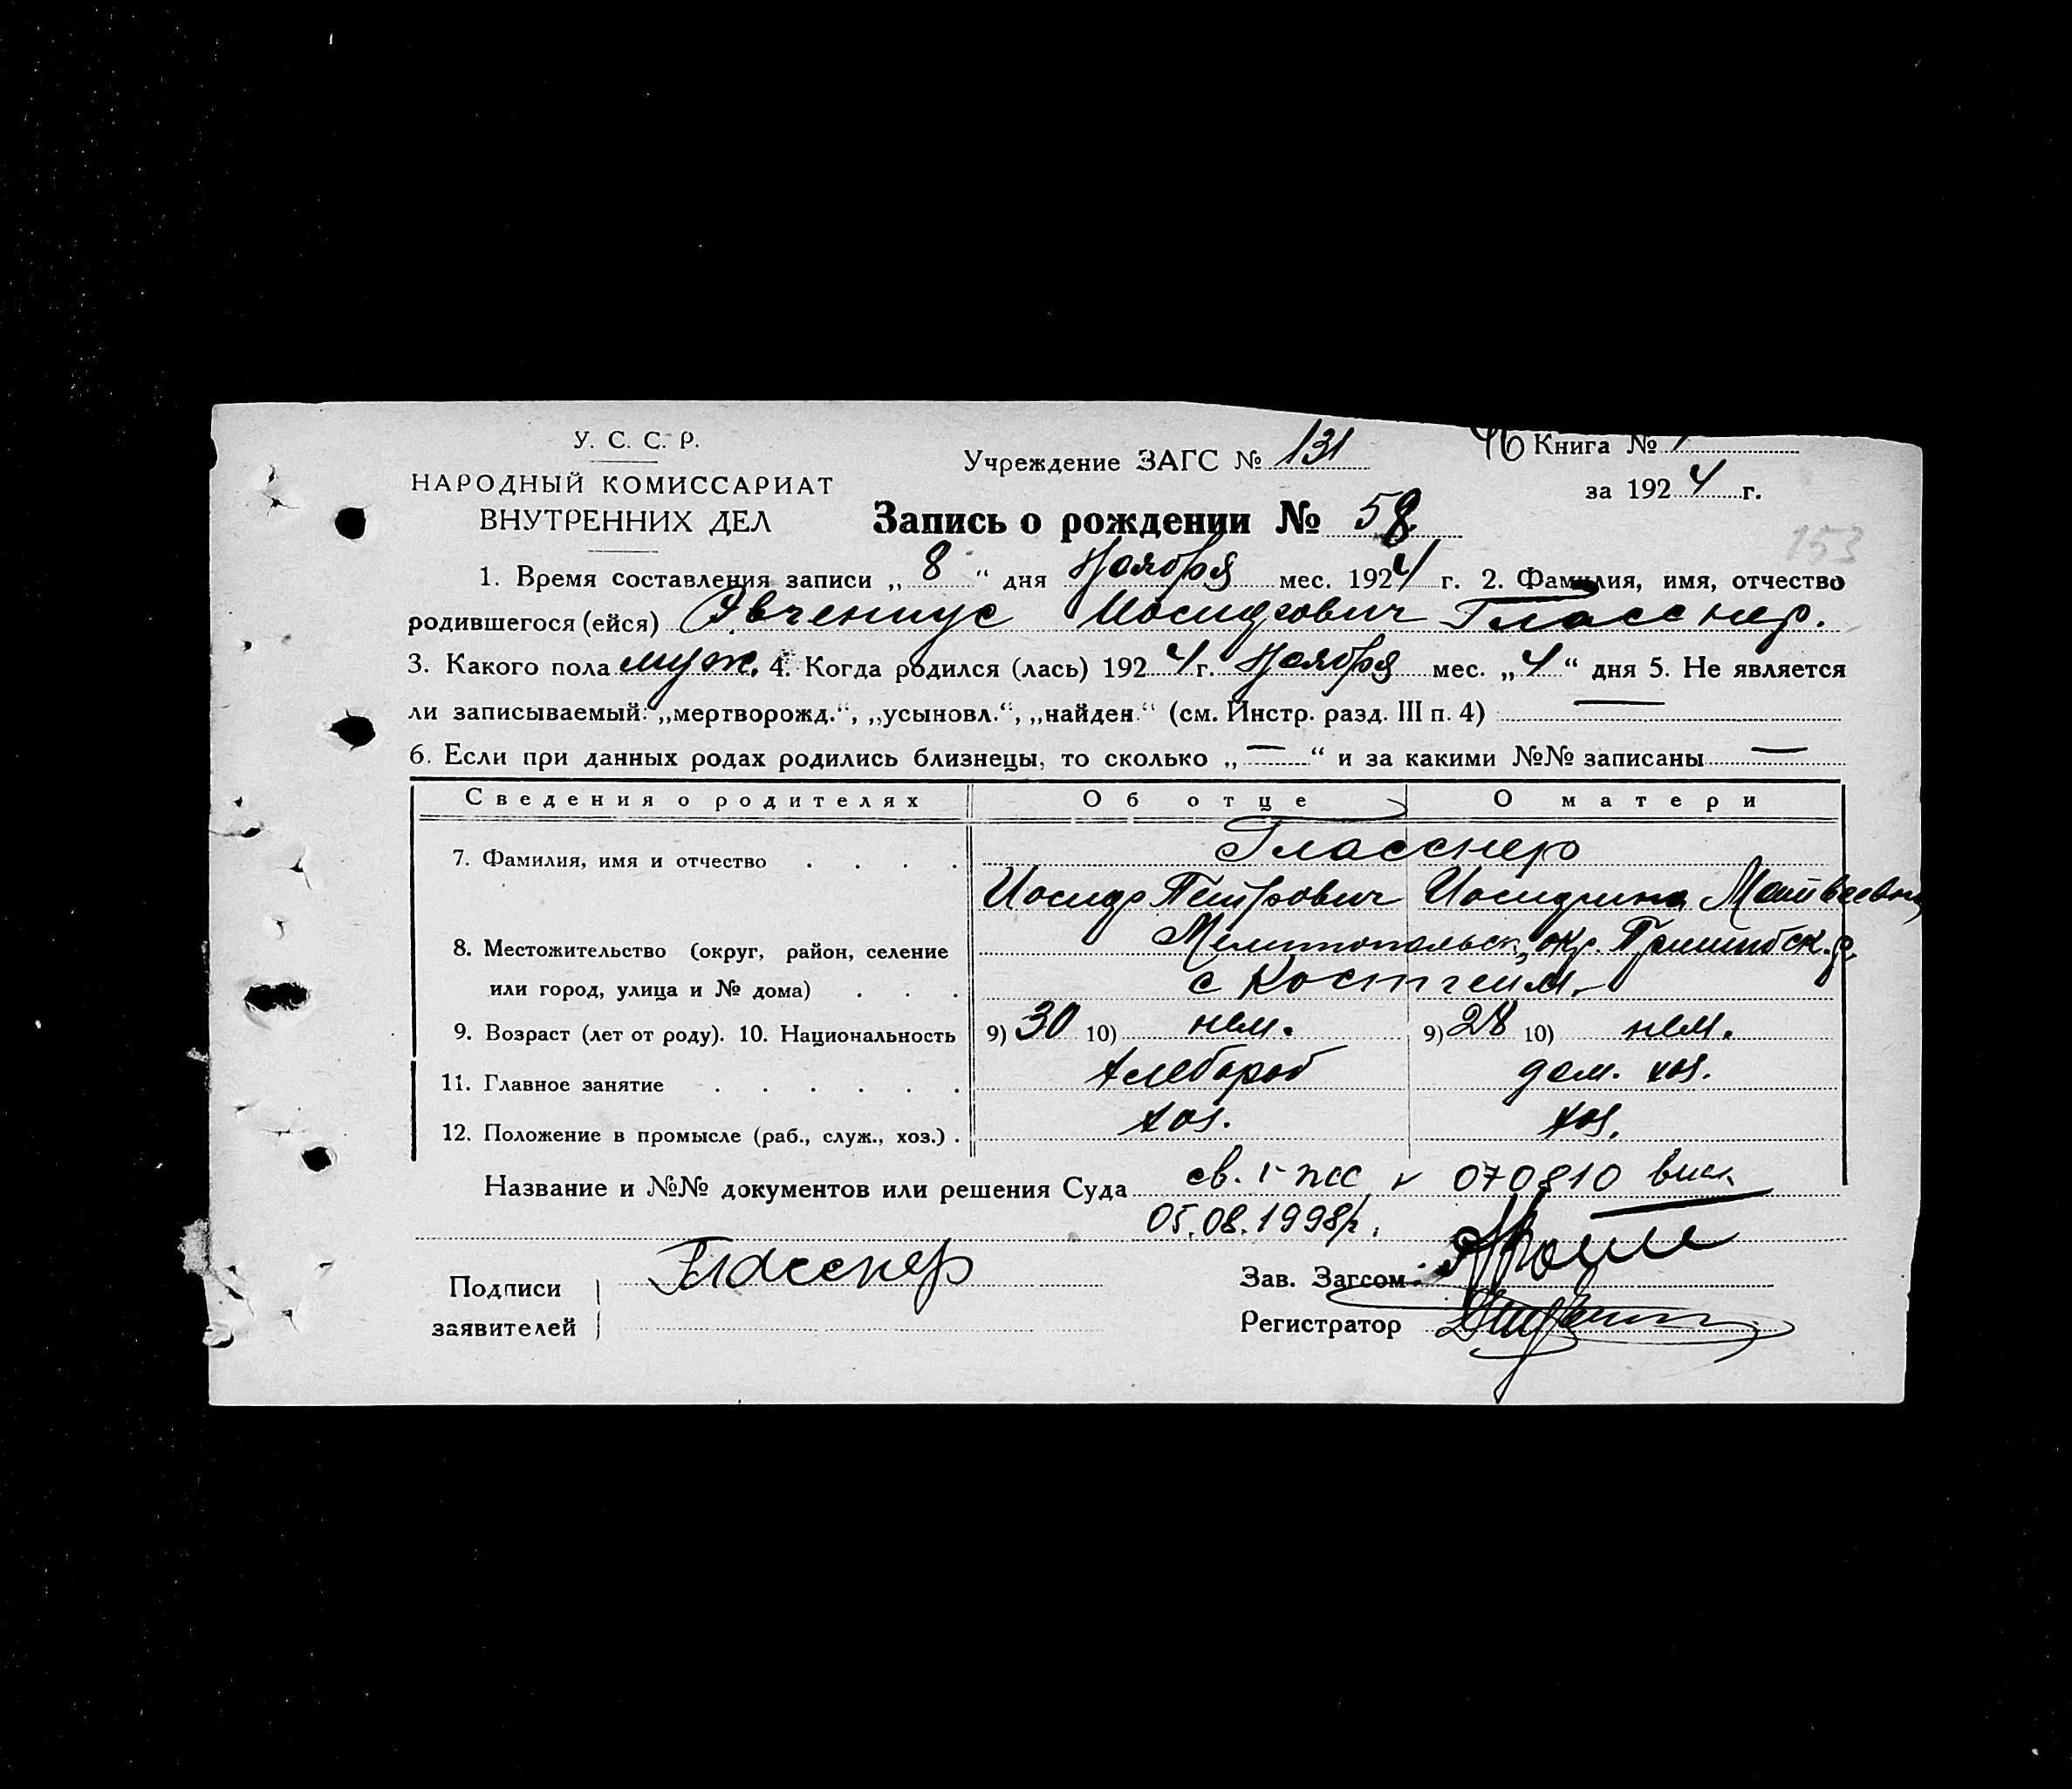 У. С. С. Р.
НАРОДНЫЙ КОМИССАРИАТ
ВНУТРЕННИХ ДЕЛ
Учреждение ЗАГС № 131
46 Книга №
за 1924 г.
Запись о рождении № 58
153
1. Время составления записи „ 8 “ дня Ноября мес. 1924 г. 2. Фамилия, имя, отчество
родившегося (ейся) Иосифович Гласснер.
3. Какого пола муж. 4. Когда родился (лась) 1924 г. Ноября мес. „ 4 “ дня 5. Не является
ли записываемый: „мертворожд.“, „усыновл.“, „найден.“ (см. Инстр. разд. III п. 4) —
6. Если при данных родах родились близнецы, то сколько „ — “ и за какими №№ записаны —
Сведения о родителях Об отце О матери
7. Фамилия, имя и отчество . . . . Гласснер
Иосиф Петрович Иосифина Матвеевна
8. Местожительство (округ, район, селение Мелитопольск. окр. Пришибск. р.
или город, улица и № дома) . . . с Костгейм.
9. Возраст (лет от роду). 10. Национальность 9) 30 10) нем. 9) 28 10) нем.
11. Главное занятие . . . . . . Хлебороб дом. хоз.
12. Положение в промысле (раб., служ., хоз.) . хоз. хоз.
Название и №№ документов или решения Суда св. 070810
05.08.1998р.
Подписи заявителей Гласснер
Зав. Загсом:
Регистратор